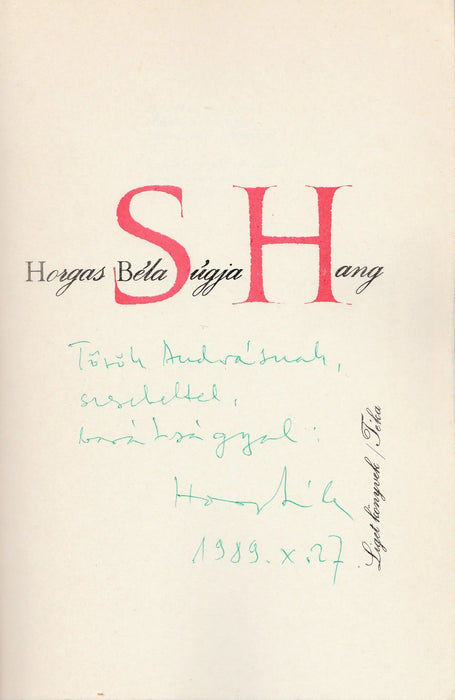 Horgas Béla Súgja Hang
Török Andrásnak,
szeretettel,
barátsággal:
Horgas Béla
1989. X. 27
Liget könyvek / Téka